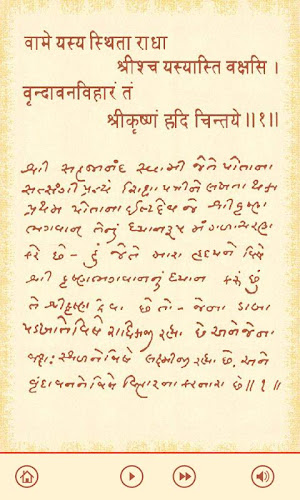 वामे यस्य स्थिता राधा
श्रीश्च यस्यास्ति वक्षसि ।
वृन्दावनविहारं तं
श्रीकृष्णं हृदि चिन्तये ॥१॥
શ્રી સહજાનંદ સ્વામી જે તે પોતાના
સત્સંગી પ્રત્યે શિક્ષાપત્રીને લખતા થકા
પ્રથમ પોતાના ઈષ્ટદેવ જે શ્રીકૃષ્ણ
ભગવાન તેનું ધ્યાનરૂપ મંગળાચરણ
કરે છે - હું જે તે મારા હૃદયને વિષે
શ્રીકૃષ્ણભગવાનનું ધ્યાન કરું છું
તે શ્રીકૃષ્ણ કેવા છે તો - જેના ડાબા
પડખાને વિષે રાધિકાજી રહ્યાં છે અને જેના
વક્ષઃસ્થળને વિષે લક્ષ્મીજી રહ્યાં છે. અને
વૃંદાવનને વિષે વિહારના કરનારા છે ॥૧॥